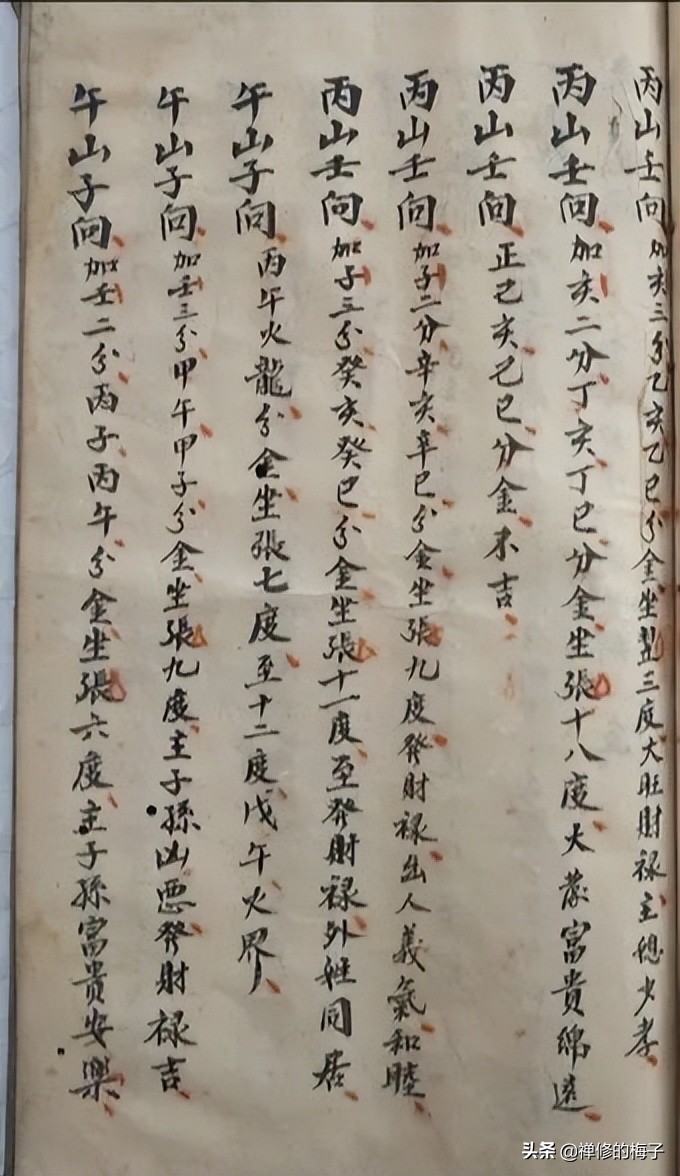 丙山壬向加亥三分乙亥乙巳分金坐翌三度大旺財禄主少孝
丙山壬向加亥二分丁亥丁巳分金坐張十八度大發富貴綿遠
丙山壬向正己亥己巳分金不吉
丙山壬向加子二分辛亥辛巳分金坐張九度發財禄出人義氣和睦
丙山壬向加子三分癸亥癸巳分金坐張十一度至發財禄外姓同居
午山子向丙午火龍分金坐張七度至十二度戊午火界
午山子向加壬三分甲午甲子分金坐張九度主子孫凶惡發財禄吉
午山子向加壬二分丙子丙午分金坐張六度主子孫富貴安樂
头条 @禅修的梅子